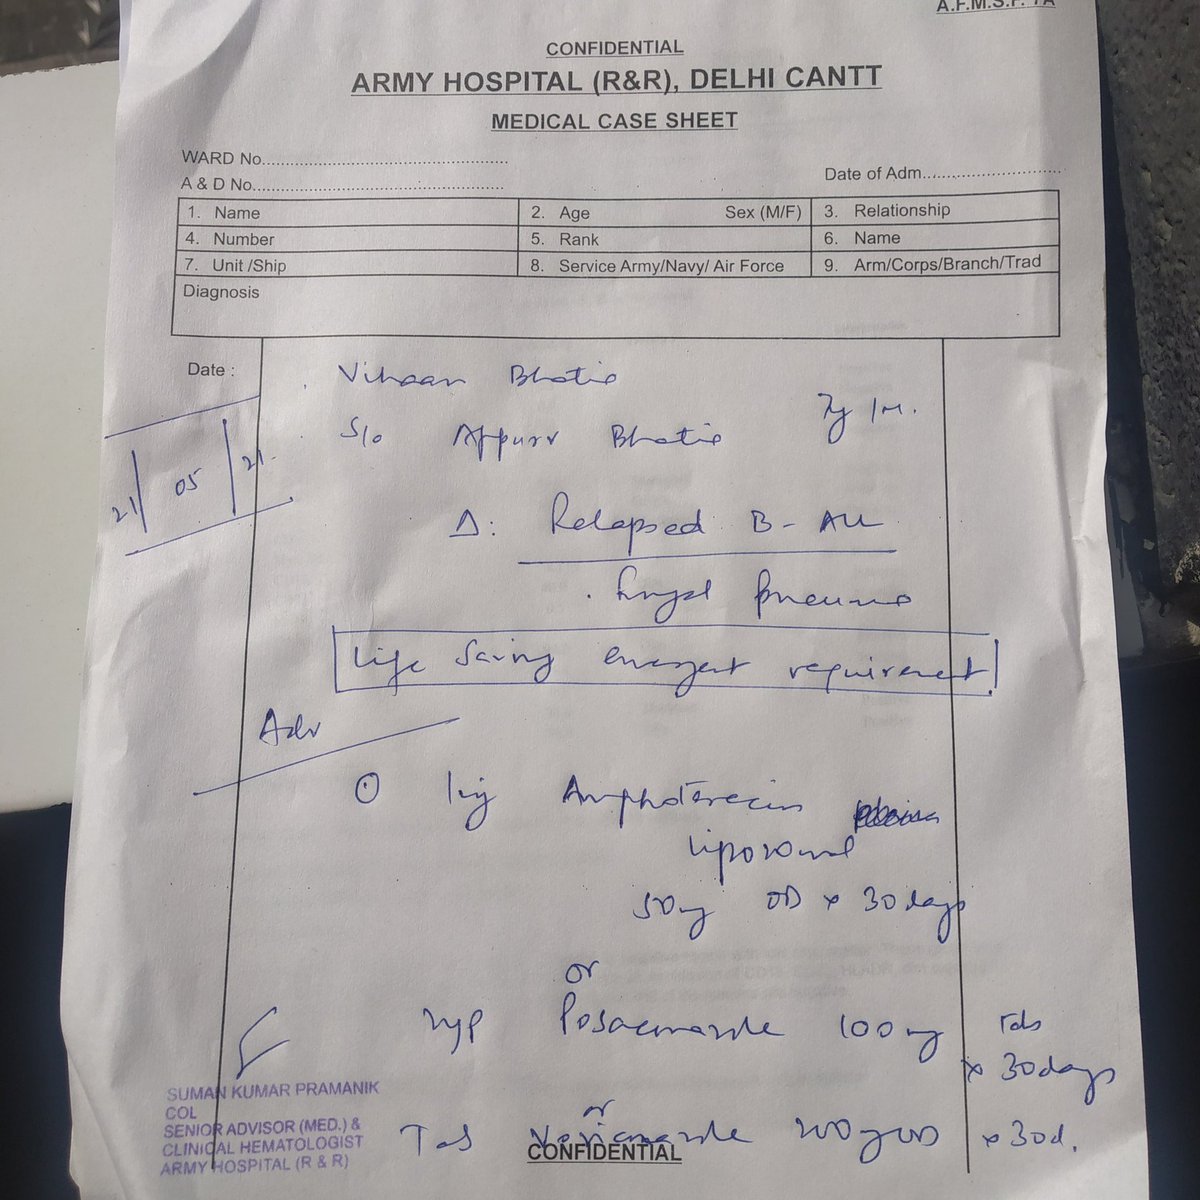 A.F.M.S.F. 7A
CONFIDENTIAL
ARMY HOSPITAL (R&R), DELHI CANTT
MEDICAL CASE SHEET
WARD No.
A & D No.
Date of Adm.
1. Name 2. Age Sex (M/F) 3. Relationship
4. Number 5. Rank 6. Name
7. Unit /Ship 8. Service Army/Navy/ Air Force 9. Arm/Corps/Branch/Trad
Diagnosis
Date :
Vihaan Bhatia
7y /M.
S/o Appurv Bhatia
21/05/21
Δ: Relapsed B-ALL
fungal pneumo
Life saving emergent requirement
Adv
① Inj Amphoterecin
liposomal
50mg OD x 30 days
or
syp Posaconazole 100mg Tds
x 30 days
or
Tab Voriconazole 200mg x 30d.
SUMAN KUMAR PRAMANIK
COL
SENIOR ADVISOR (MED.) &
CLINICAL HEMATOLOGIST
ARMY HOSPITAL (R & R)
CONFIDENTIAL